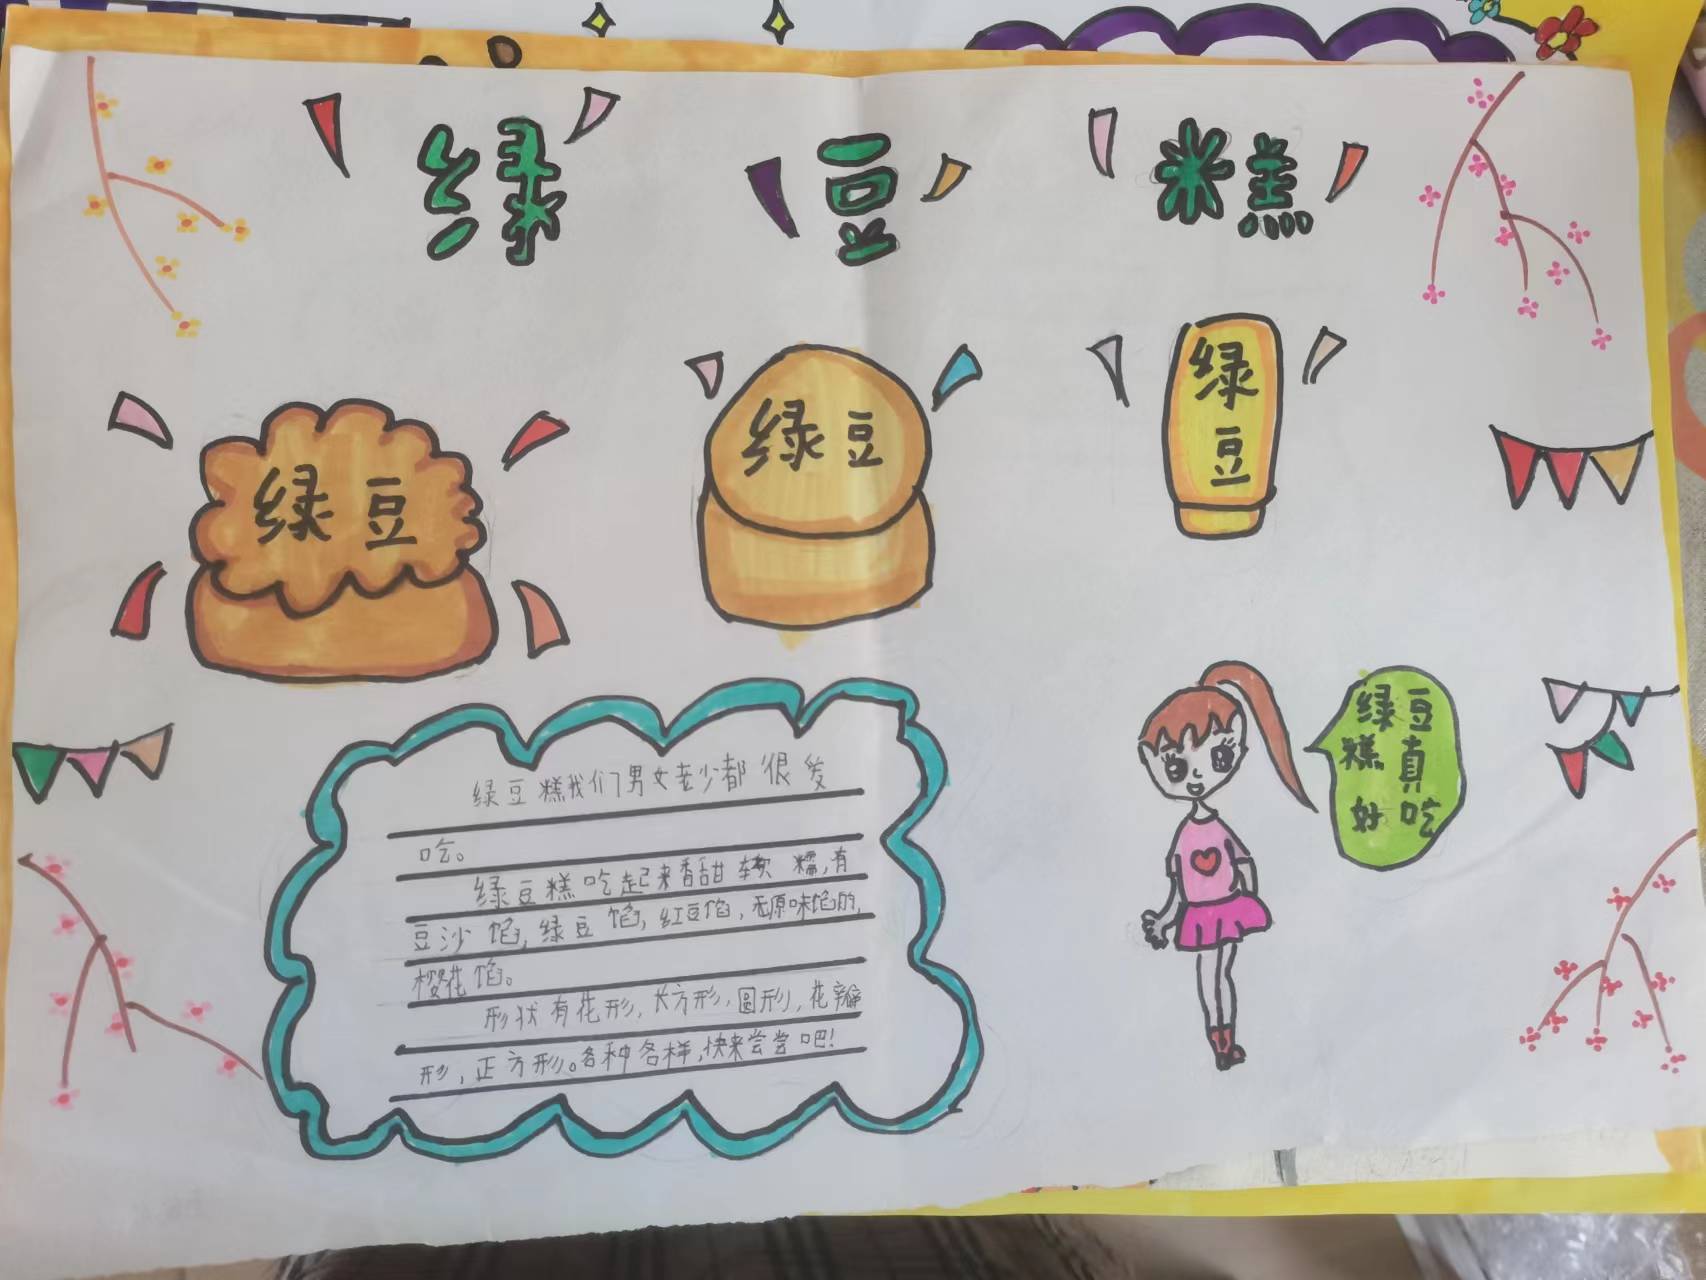 绿豆糕
绿豆
绿豆
绿
豆
绿豆糕我们男女老少都很爱
吃。
绿豆糕吃起来香甜软糯,有
豆沙馅,绿豆馅,红豆馅,无原味馅的,
樱花馅。
形状有花形,长方形,圆形,花瓣
形,正方形。各种各样,快来尝尝吧!
绿豆
糕真
好吃